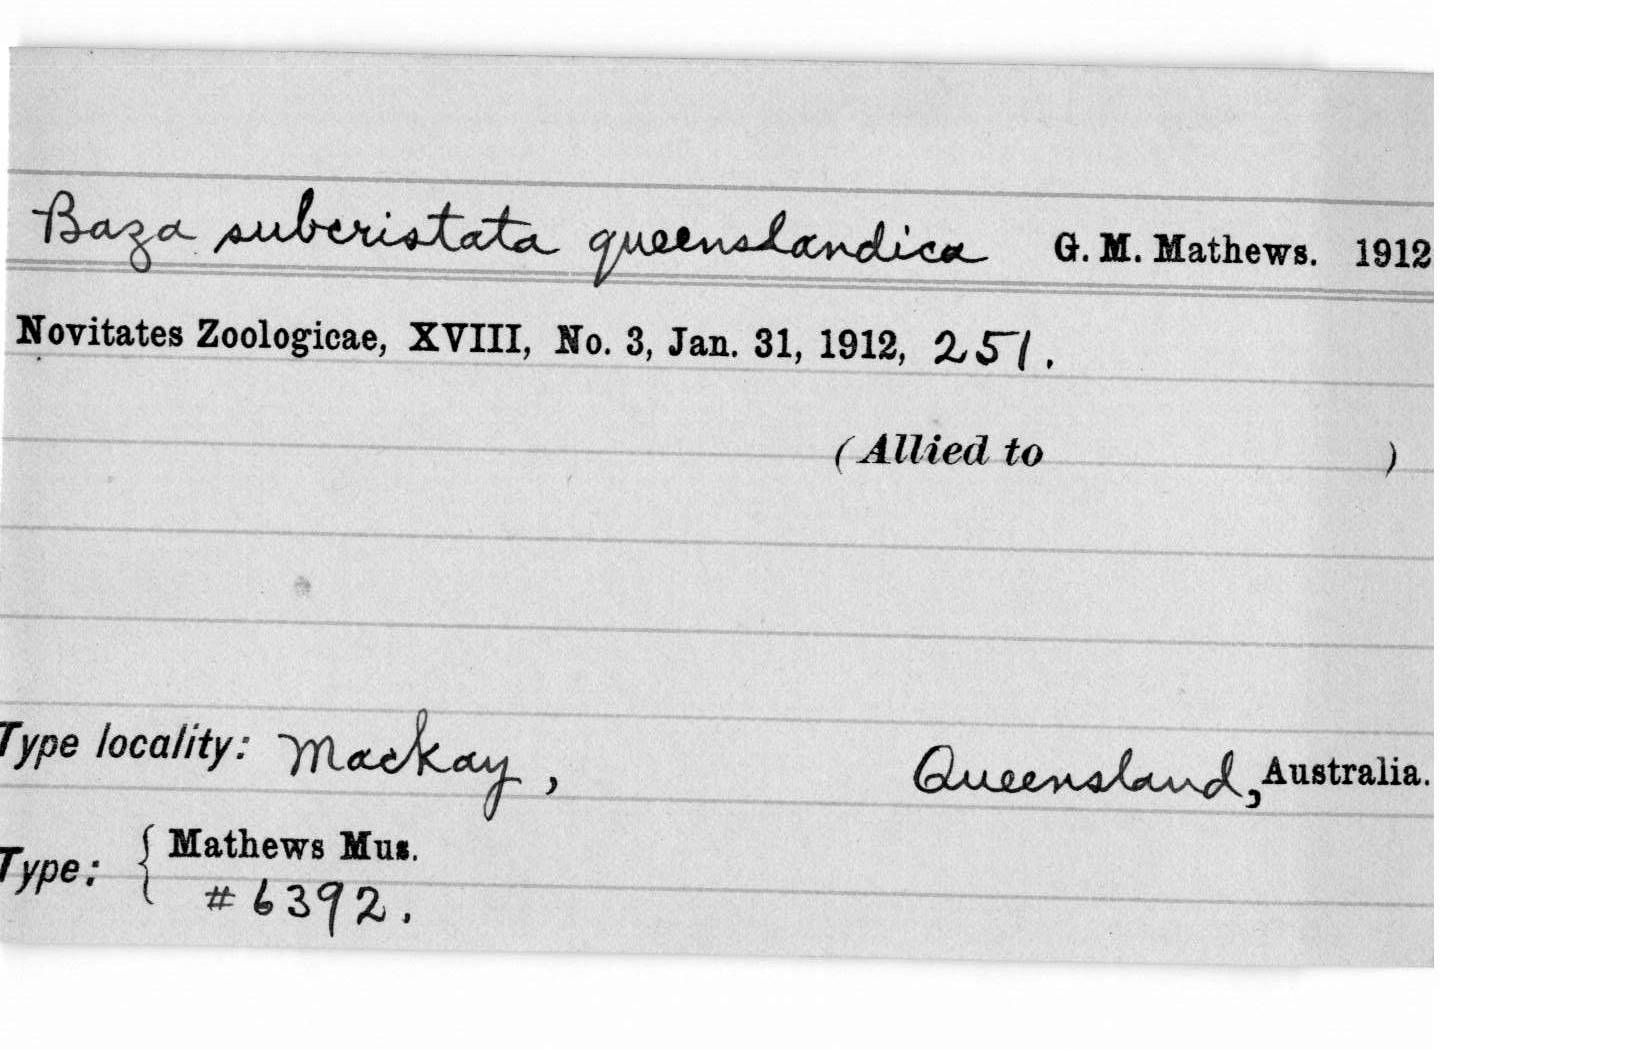 Baza subcristata queenslandica G. M. Mathews. 1912
Novitates Zoologicae, XVIII, No. 3, Jan. 31, 1912, 251.
(Allied to )
Type locality: Mackay, Queensland, Australia.
Type: { Mathews Mus.
# 6392.